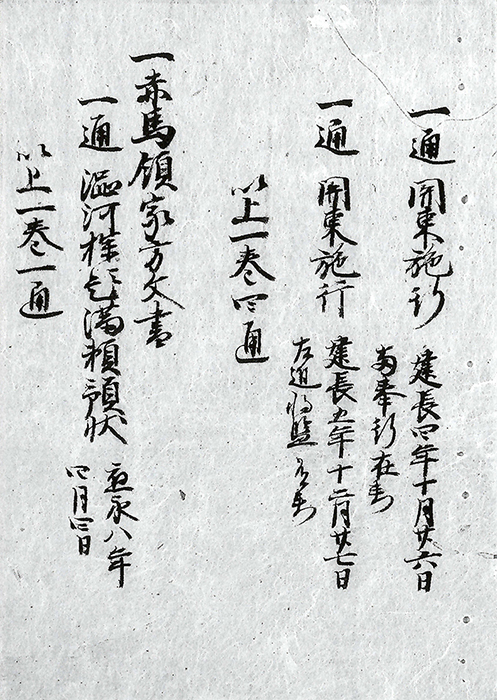 一通 関東施行 建長四年十月廿六日
両奉行在判
一通 関東施行 建長五年十二月廿七日
左近将監在判
以上一巻四通
一赤馬領家方文書
一通 渋河探題満頼預状 応永八年
四月三日
以上一巻一通